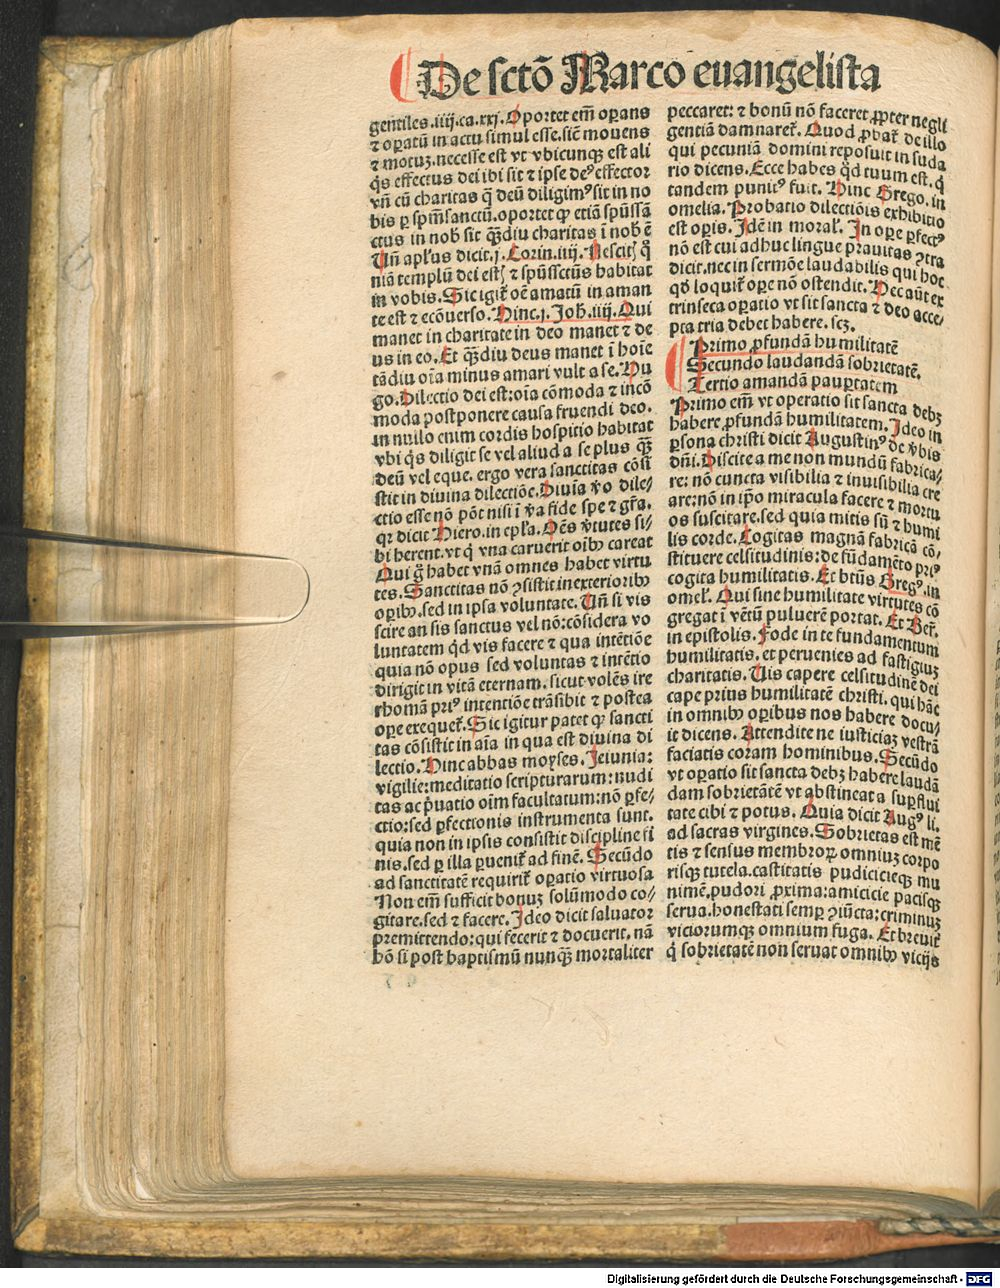 De sctō Marco euangelista
gentiles.iiij.ca.xxj. Oportet em̄ oꝑans
⁊ oꝑatū in actu simul esse. sic̄ mouens
⁊ motuꝫ. necesse est vt vbicunqꝫ est ali
q̇s effectus dei ibi sit ⁊ ipse deꝰ effector
vn̄ cū charitas q̄ deū diligimꝰ sit in no
bis ꝑ spm̄sanctū. oportet ꝙ etiā spūssā
ctus in nob̄ sit qꝫ̄diu charitas ī nob̄ ē
Un̄ apl'us dicit.j. Corin.iiij. Nescitꝭ q̇
niā templū dei estꝭ ⁊ spūssctūs habitat
in vobis. Sic igit̄ oē amatū in aman
te est ⁊ ecōuerso. Hinc.j. Joh̄.iiij. Qui
manet in charitate in deo manet ⁊ de
us in eo. Et qꝫ̄diu deus manet ī hoīe
tādiu oīa minus amari vult a se. Hu
go. Dilectio dei est: oīa cōmoda ⁊ incō
moda postponere causa fruendi deo.
in nullo enim cordis hospitio habitat
vbi q̇s diligit se vel aliud a se plus qꝫ̄
deū vel eque. ergo vera sanctitas cōsi
stit in diuina dilectiōe. Diuīa v̄o dile⸗
ctio esse nō pōt nisi ī v̄a fide spe ⁊ gr̄a.
qꝛ dicit Hiero. in epl'a. Oēs v̄tutes si⸗
bi herent. vt q̇ vna caruerit oībꝫ careat
Qui g̊ habet vnā omnes habet virtu
tes. Sanctitas nō ꝯsistit in exterioribꝫ
oꝑibꝫ. sed in ipsa voluntate. Un̄ si vis
scire an sis sanctus vel nō: cōsidera vo
luntatem q̇d vis facere ⁊ qua intētiōe
quia nō opus sed voluntas ⁊ intētio
dirigit in vitā eternam. sicut volēs ire
rhomā priꝰ intentiōe trāsibit ⁊ postea
oꝑe exequet̄. Sic igitur patet ꝙ sancti
tas cōsistit in aīa in qua est diuina di
lectio. Hinc abbas moyses. Jeiunia:
vigilie: meditatio scripturarum: nudi
tas ac p̄uatio oīm facultatum: nō ꝑfe⸗
ctio: sed ꝑfectionis instrumenta sunt.
quia non in ipsis consistit discipline fi
nis. sed ꝑ illa ꝑuenit̄ ad finē. Secūdo
ad sanctitatē requirit̄ oꝑatio virtuosa
Non em̄ sufficit bonuꝫ solūmodo co⸗
gitare. sed ⁊ facere. Ideo dicit saluator
premittendo: qui fecerit ⁊ docuerit. nā
hō si post baptismū nunqꝫ̄ mortaliter
peccaret: ⁊ bonū nō faceret ꝓpter negli
gentiā damnaret̄. Quod ꝓbat̄ de illo
qui pecuniā domini reposuit in suda
rio dicens. Ecce habes q̇d tuum est. q̇
tandem punitꝰ fuit. Hinc Grego. in
omelia. Probatio dilectiōis exhibitio
est oꝑis. Idē in moral'. In oꝑe ꝑfectꝰ
nō est cui adhuc lingue prauitas ꝯtra
dicit. nec in sermōe laudabilis qui hoc
qd̄ loquit̄ oꝑe nō ostendit. Hec aūt ex
trinseca oꝑatio vt sit sancta ⁊ deo acce⸗
pta tria debet habere. scꝫ.
Primo ꝓfundā humilitatē
Secundo laudandā sobrietatē.
Tertio amandā pauꝑtatem
Primo em̄ vt operatio sit sancta debꝫ
habere ꝓfundā humilitatem. Ideo in
ꝑsona christi dicit Augustinꝰ de v̄bis
dn̄i. Discite a me non mundū fabrica⸗
re: nō cuncta visibilia ⁊ inuisibilia cre
are: nō in ip̄o miracula facere ⁊ mortu
os suscitare. sed quia mitis sū ⁊ humi
lis corde. Cogitas magnā fabricā cō⸗
stituere celsitudinis: de fūdamēto priꝰ
cogita humilitatis. Et btūs Gregꝰ. in
omel'. Qui sine humilitate virtutes cō
gregat ī vētū puluerē portat. Et Ber̄.
in epistolis. Fode in te fundamentum
humilitatis. et peruenies ad fastigiuꝫ
charitatis. Uis capere celsitudinē dei
cape prius humilitatē christi. qui hāc
in omnibꝫ oꝑibus nos habere docu⸗
it dicens. Attendite ne iusticiaꝫ vestrā
faciatis coram hominibus. Secūdo
vt oꝑatio sit sancta debꝫ habere laudā
dam sobrietātē vt abstineat a suꝑflui
tate cibi ⁊ potus. Quia dicit Augꝰ li.
ad sacras virgines. Sobrietas est mē
tis ⁊ sensus membroꝝ omniuꝫ corpo
risqꝫ tutela. castitatis pudicicieqꝫ mu
nimē. pudori ꝓxima: amicicie pacisqꝫ
serua. honestati semꝑ ꝯiūcta: criminuꝫ
viciorumqꝫ omnium fuga. Et breuit̄
q̇ sobrietatē non seruat omnibꝫ vicijs
Digitalisierung gefördert durch die Deutsche Forschungsgemeinschaft - DFG